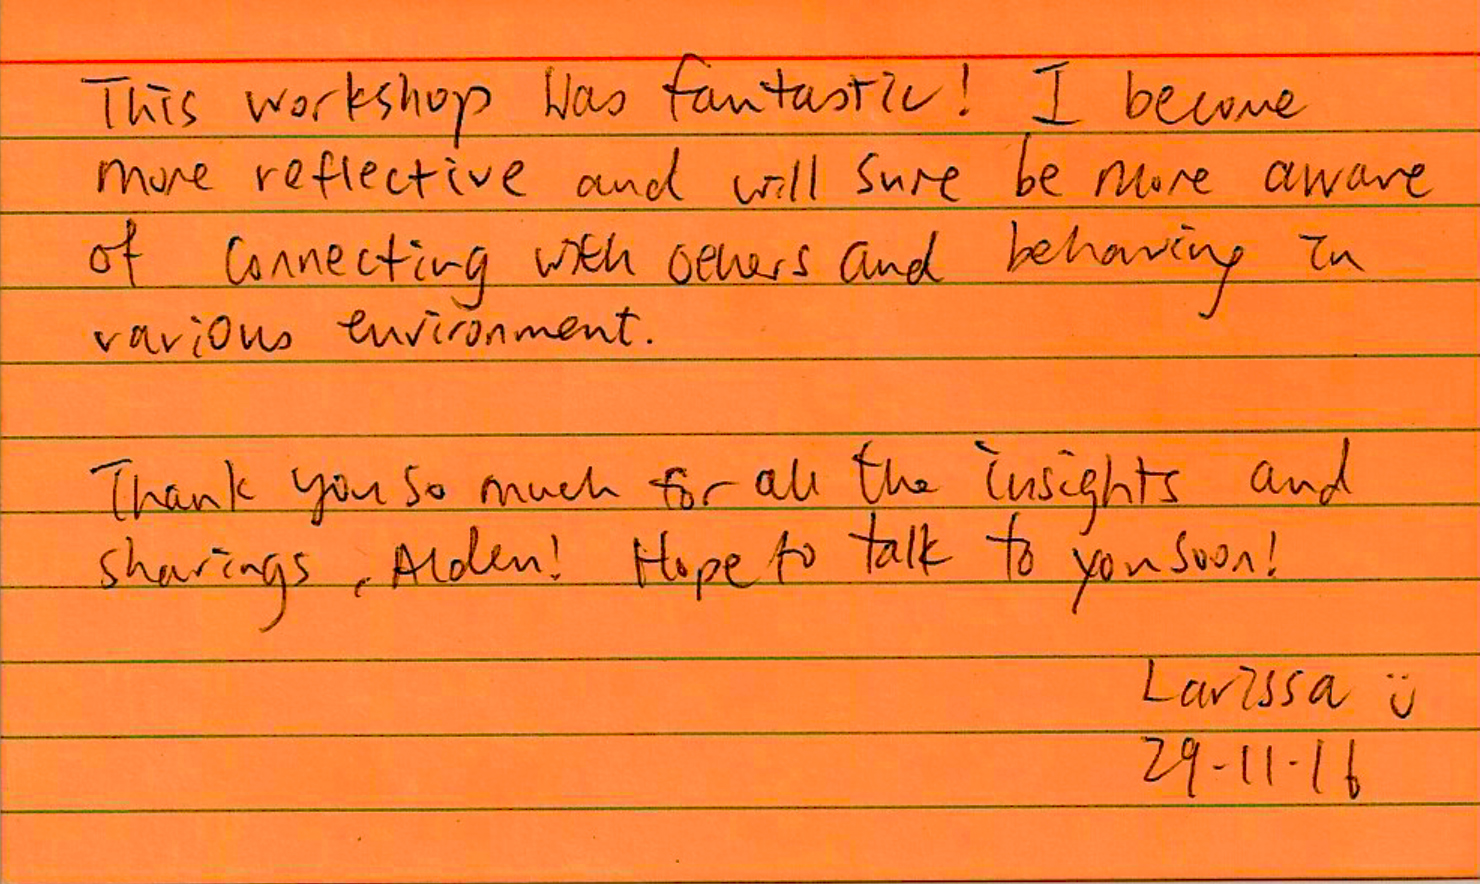 This workshop was fantastic! I become
more reflective and will sure be more aware
of connecting with others and behaving in
various environment.
Thank you so much for all the insights and
sharings, Alden! Hope to talk to you soon!
Larissa ü
29-11-16